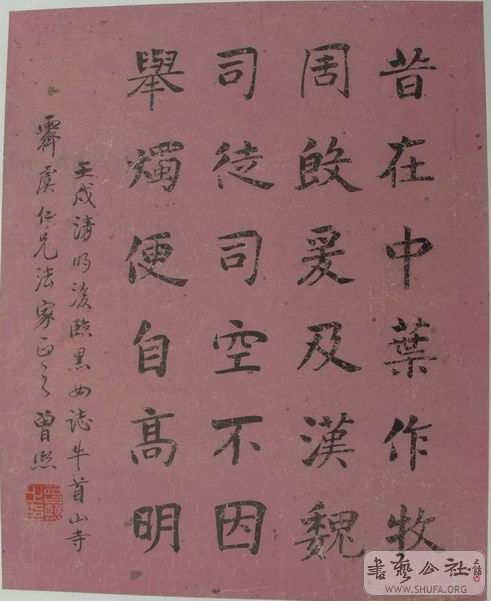 昔在中葉作牧
周殷爰及漢魏
司徒司空不因
舉燭便自高明
壬戌清明後臨黑女誌牛首山寺
霽虞仁兄法家正之 曾熙
書藝公社
WWW.SHUFA.ORG